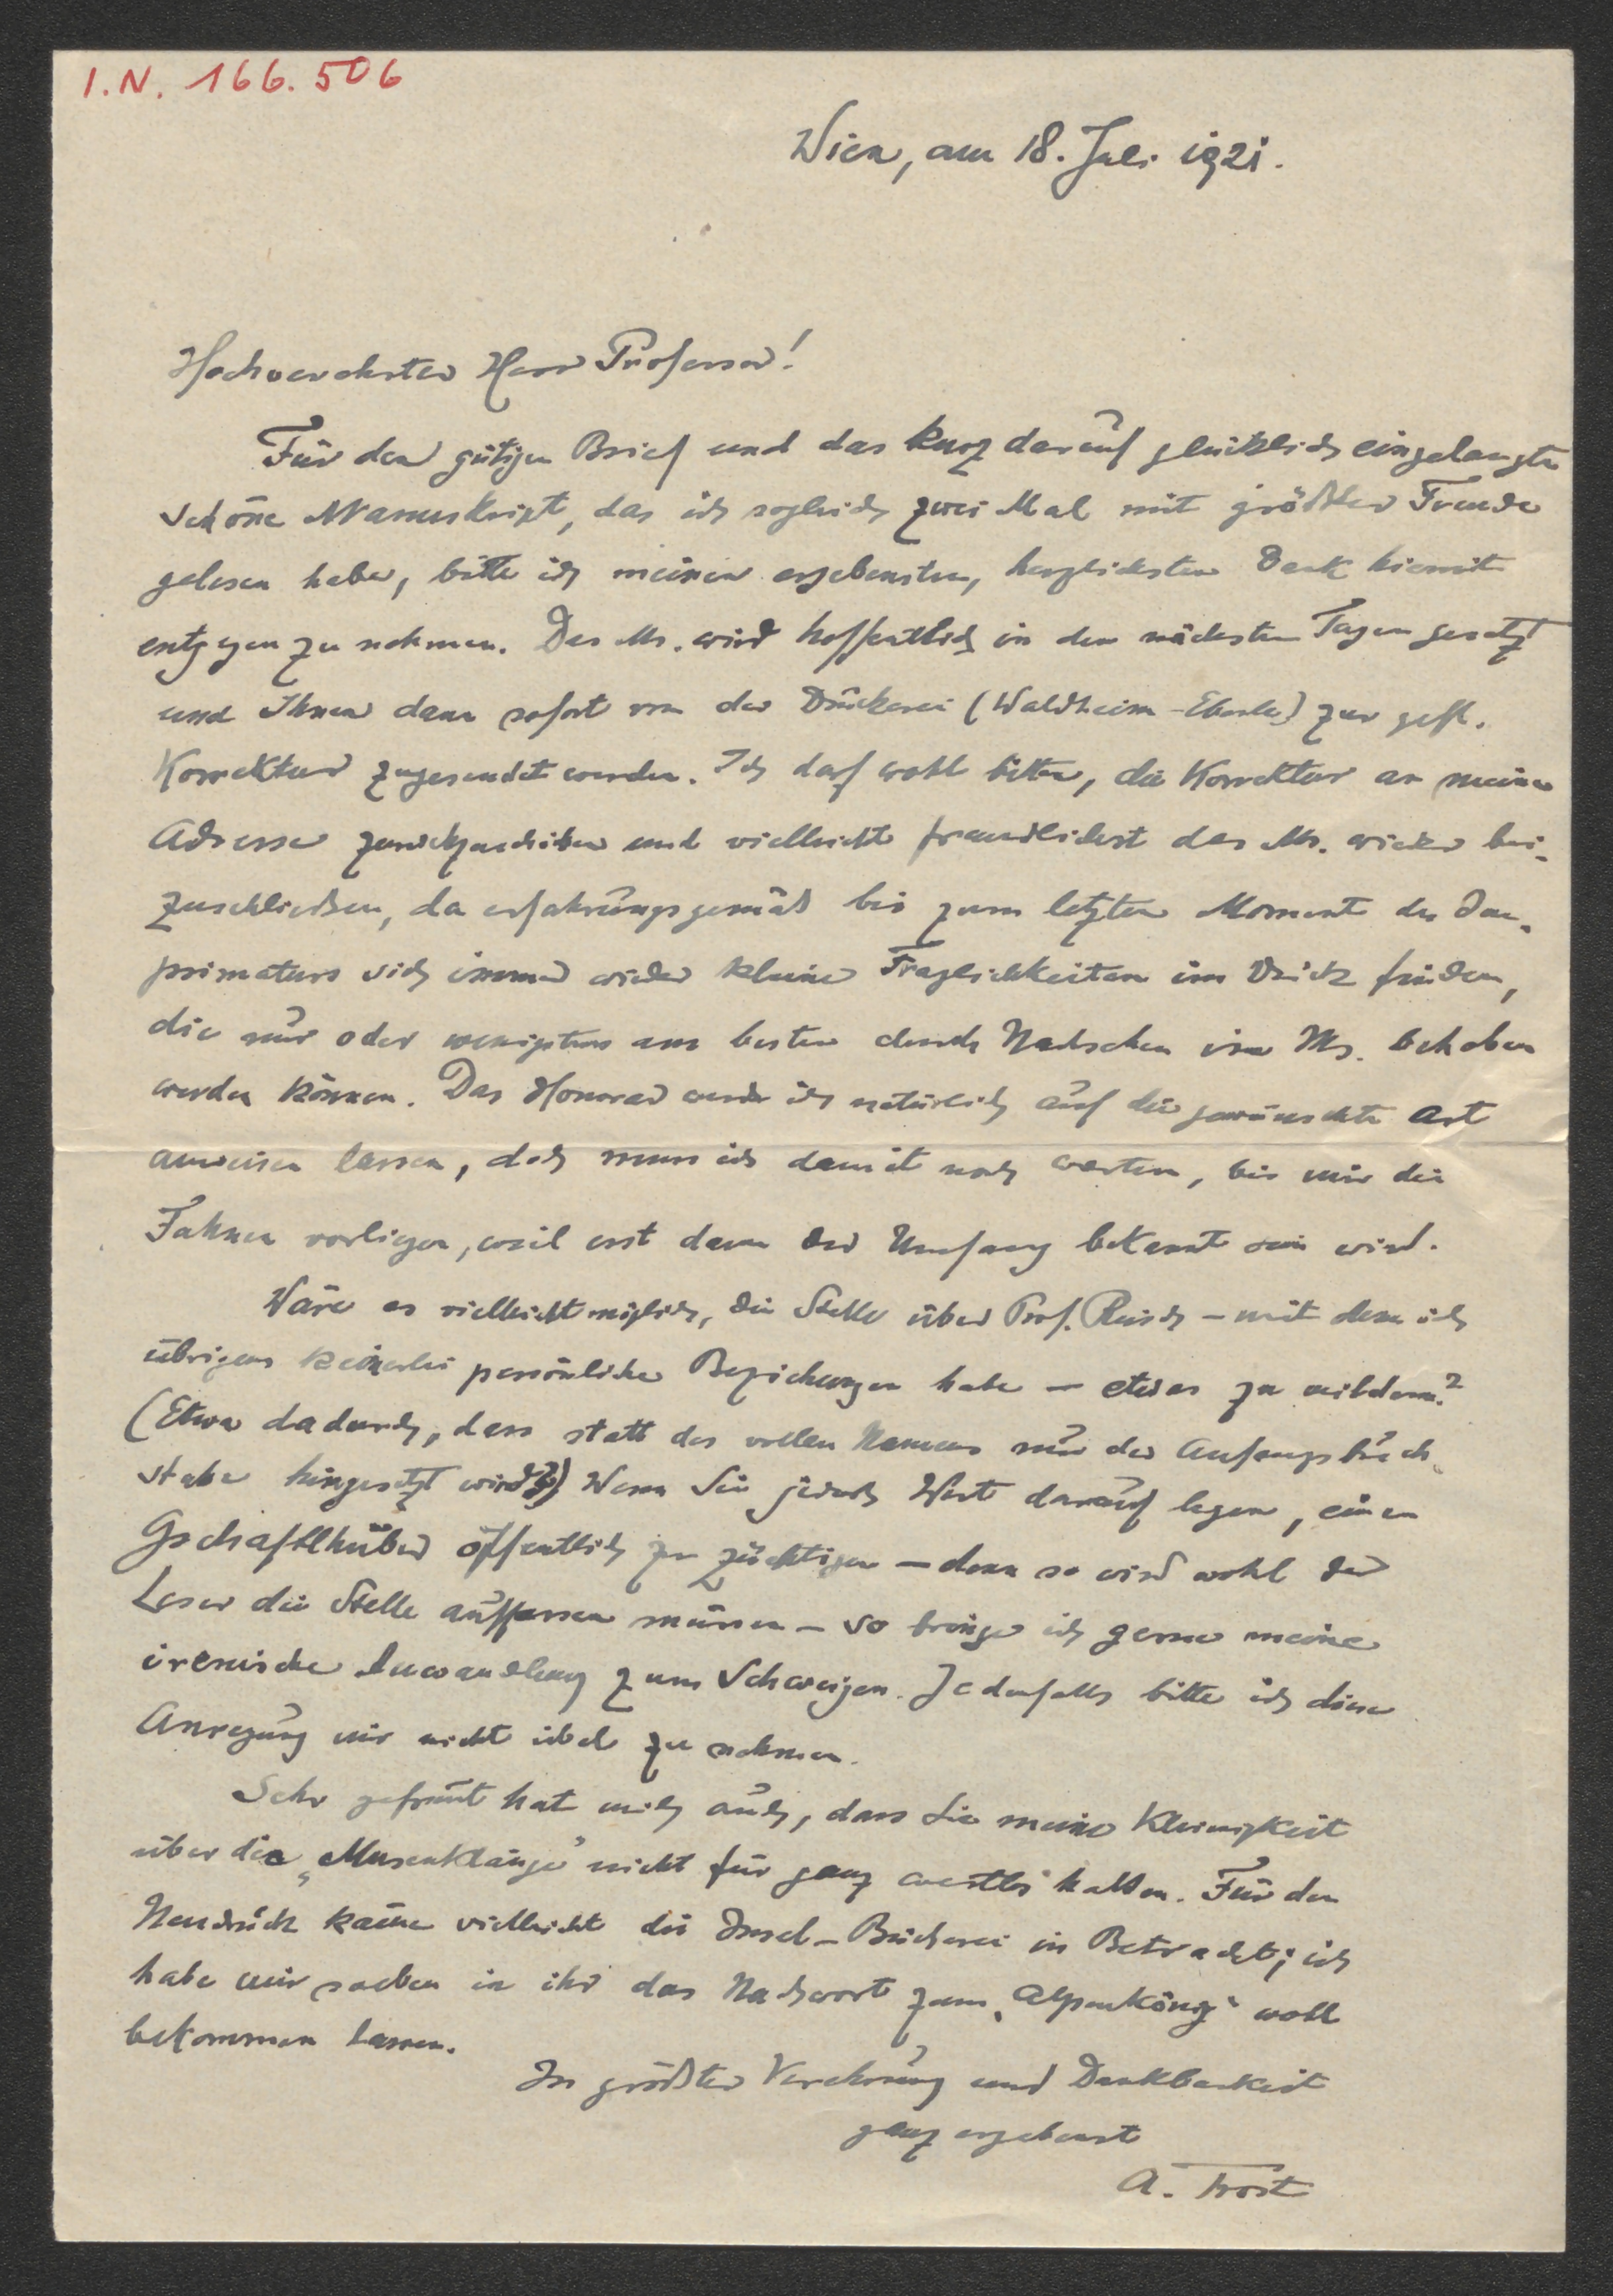 I.N. 166.506
Wien, am 18. Juli 1921.
Hochverehrter Herr Professor!
Für den gütigen Brief und das kurz darauf glücklich eingelangte
schöne Manuskript, das ich sogleich zwei Mal mit größter Freude
gelesen habe, bitte ich meinen ergebensten, herzlichsten Dank hiemit
entgegen zu nehmen. Das Ms. wird hoffentlich in den nächsten Tagen gesetzt
und Ihnen dann sofort von der Druckerei (Waldheim-Eberle) zur gefl.
Korrektur zugesendet werden. Ich darf wohl bitten, die Korrektur an meine
Adresse zurückzuschicken und vielleicht freundlichst das Ms. wieder bei-
zuschließen, da erfahrungsgemäß bis zum letzten Moment des Im-
primaturs sich immer wieder kleine Fraglichkeiten im Druck finden,
die nur oder wenigstens am besten durch Nachsehen im Ms. behoben
werden können. Das Honorar werde ich natürlich auf die gewünschte Art
anweisen lassen, doch muss ich damit noch warten, bis mir die
Fahnen vorliegen, weil erst dann der Umfang bekannt sein wird.
Wäre es vielleicht möglich, die Stelle über Prof. Reisch – mit dem ich
übrigens keinerlei persönliche Beziehungen habe – etwas zu mildern?
(Etwa dadurch, dass statt des vollen Namens nur der Anfangsbuch-
stabe hingesetzt wird?) Wenn Sie jedoch Wert darauf legen, einen
Gschaftlhuber öffentlich zu züchtigen – denn so wird wohl der
Leser die Stelle auffassen müssen – so bringe ich gerne meine
irenische Anwandlung zum Schweigen. Jedenfalls bitte ich diese
Anregung mir nicht übel zu nehmen.
Sehr gefreut hat mich auch, dass Sie meine Kleinigkeit
über die „Musenklänge" nicht für ganz wertlos halten. Für den
Neudruck käme vielleicht die Insel-Bücherei in Betracht; ich
habe mir soeben in ihr das Nachwort zum „Alpenkönig" wohl
bekommen lassen.
In größter Verehrung und Dankbarkeit
ganz ergebenst
A. Trost